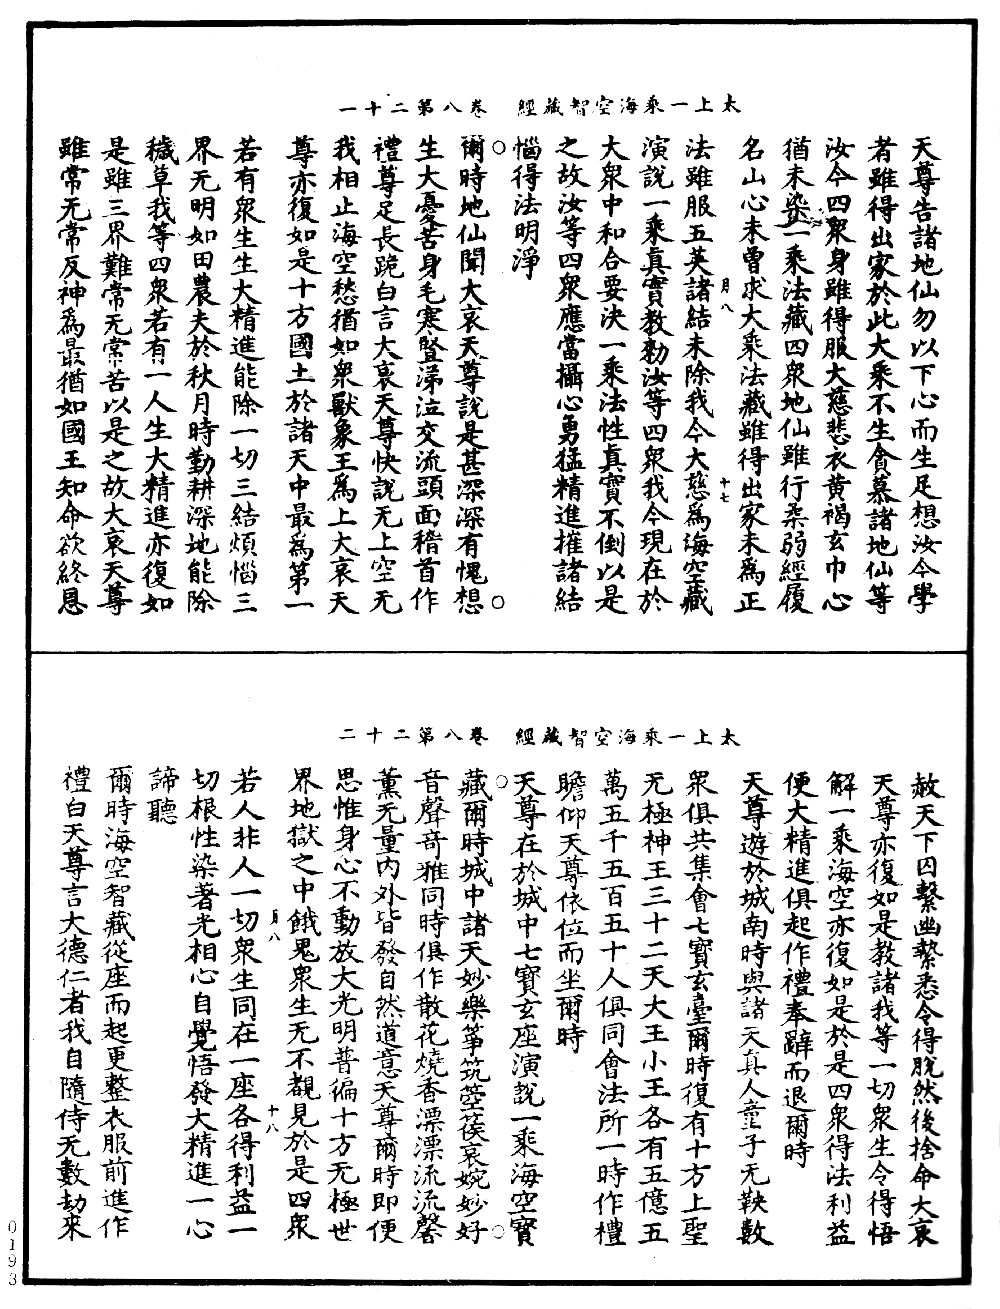 太上一乘海空智藏經　卷八第二十一
天尊告諸地仙勿以下心而生足想汝今學
者雖得出家於此大乘不生貪慕諸地仙等
汝今四衆身雖得服大慈悲衣黄褐玄巾心
猶未染一乘法藏四衆地仙雖行柔弱經履
名山心未曾求大乘法藏雖得出家未爲正
月八
十七
法雖服五英諸結未除我今大慈爲海空藏
演説一乘真實教勑汝等四衆我今現在於
大衆中和合要決一乘法性真實不倒以是
之故汝等四衆應當攝心勇猛精進摧諸結
惱得法明淨
爾時地仙聞大哀天尊説是甚深深有愧想
生大憂苦身毛寒竪涕泣交流頭面稽首作
禮尊足長跪白言大哀天尊快説无上空无
我相止海空愁猶如衆獸象王爲上大哀天
尊亦復如是十方國土於諸天中最爲第一
若有衆生生大精進能除一切三結煩惱三
界无明如田農夫於秋月時勤耕深地能除
穢草我等四衆若有一人生大精進亦復如
是雖三界難常无常苦以是之故大哀天尊
雖常无常反神爲最猶如國王知命欲終恩
太上一乘海空智藏經　卷八第二十二
赦天下囚繫幽縶悉令得脱然後捨命大哀
天尊亦復如是教諸我等一切衆生令得悟
解一乘海空亦復如是於是四衆得法利益
便大精進俱起作禮奉辭而退爾時
天尊遊於城南時與諸天真人童子无鞅數
衆俱共集會七寶玄臺爾時復有十方上聖
无極神王三十二天大王小王各有五億五
萬五千五百五十人俱同會法所一時作禮
瞻仰天尊依位而坐爾時
天尊在於城中七寶玄座演説一乘海空寶
藏爾時城中諸天妙樂箏筑箜篌哀婉妙好
音聲奇雅同時俱作散花燒香漂漂流流馨
薰无量内外皆發自然道意天尊爾時即便
思惟身心不動放大光明普徧十方无極世
界地獄之中餓鬼衆生无不覩見於是四衆
月八
十八
若人非人一切衆生同在一座各得利益一
切根性染著光相心自覺悟發大精進一心
諦聽
爾時海空智藏從座而起更整衣服前進作
禮白天尊言大德仁者我自隨侍无數劫來
0193